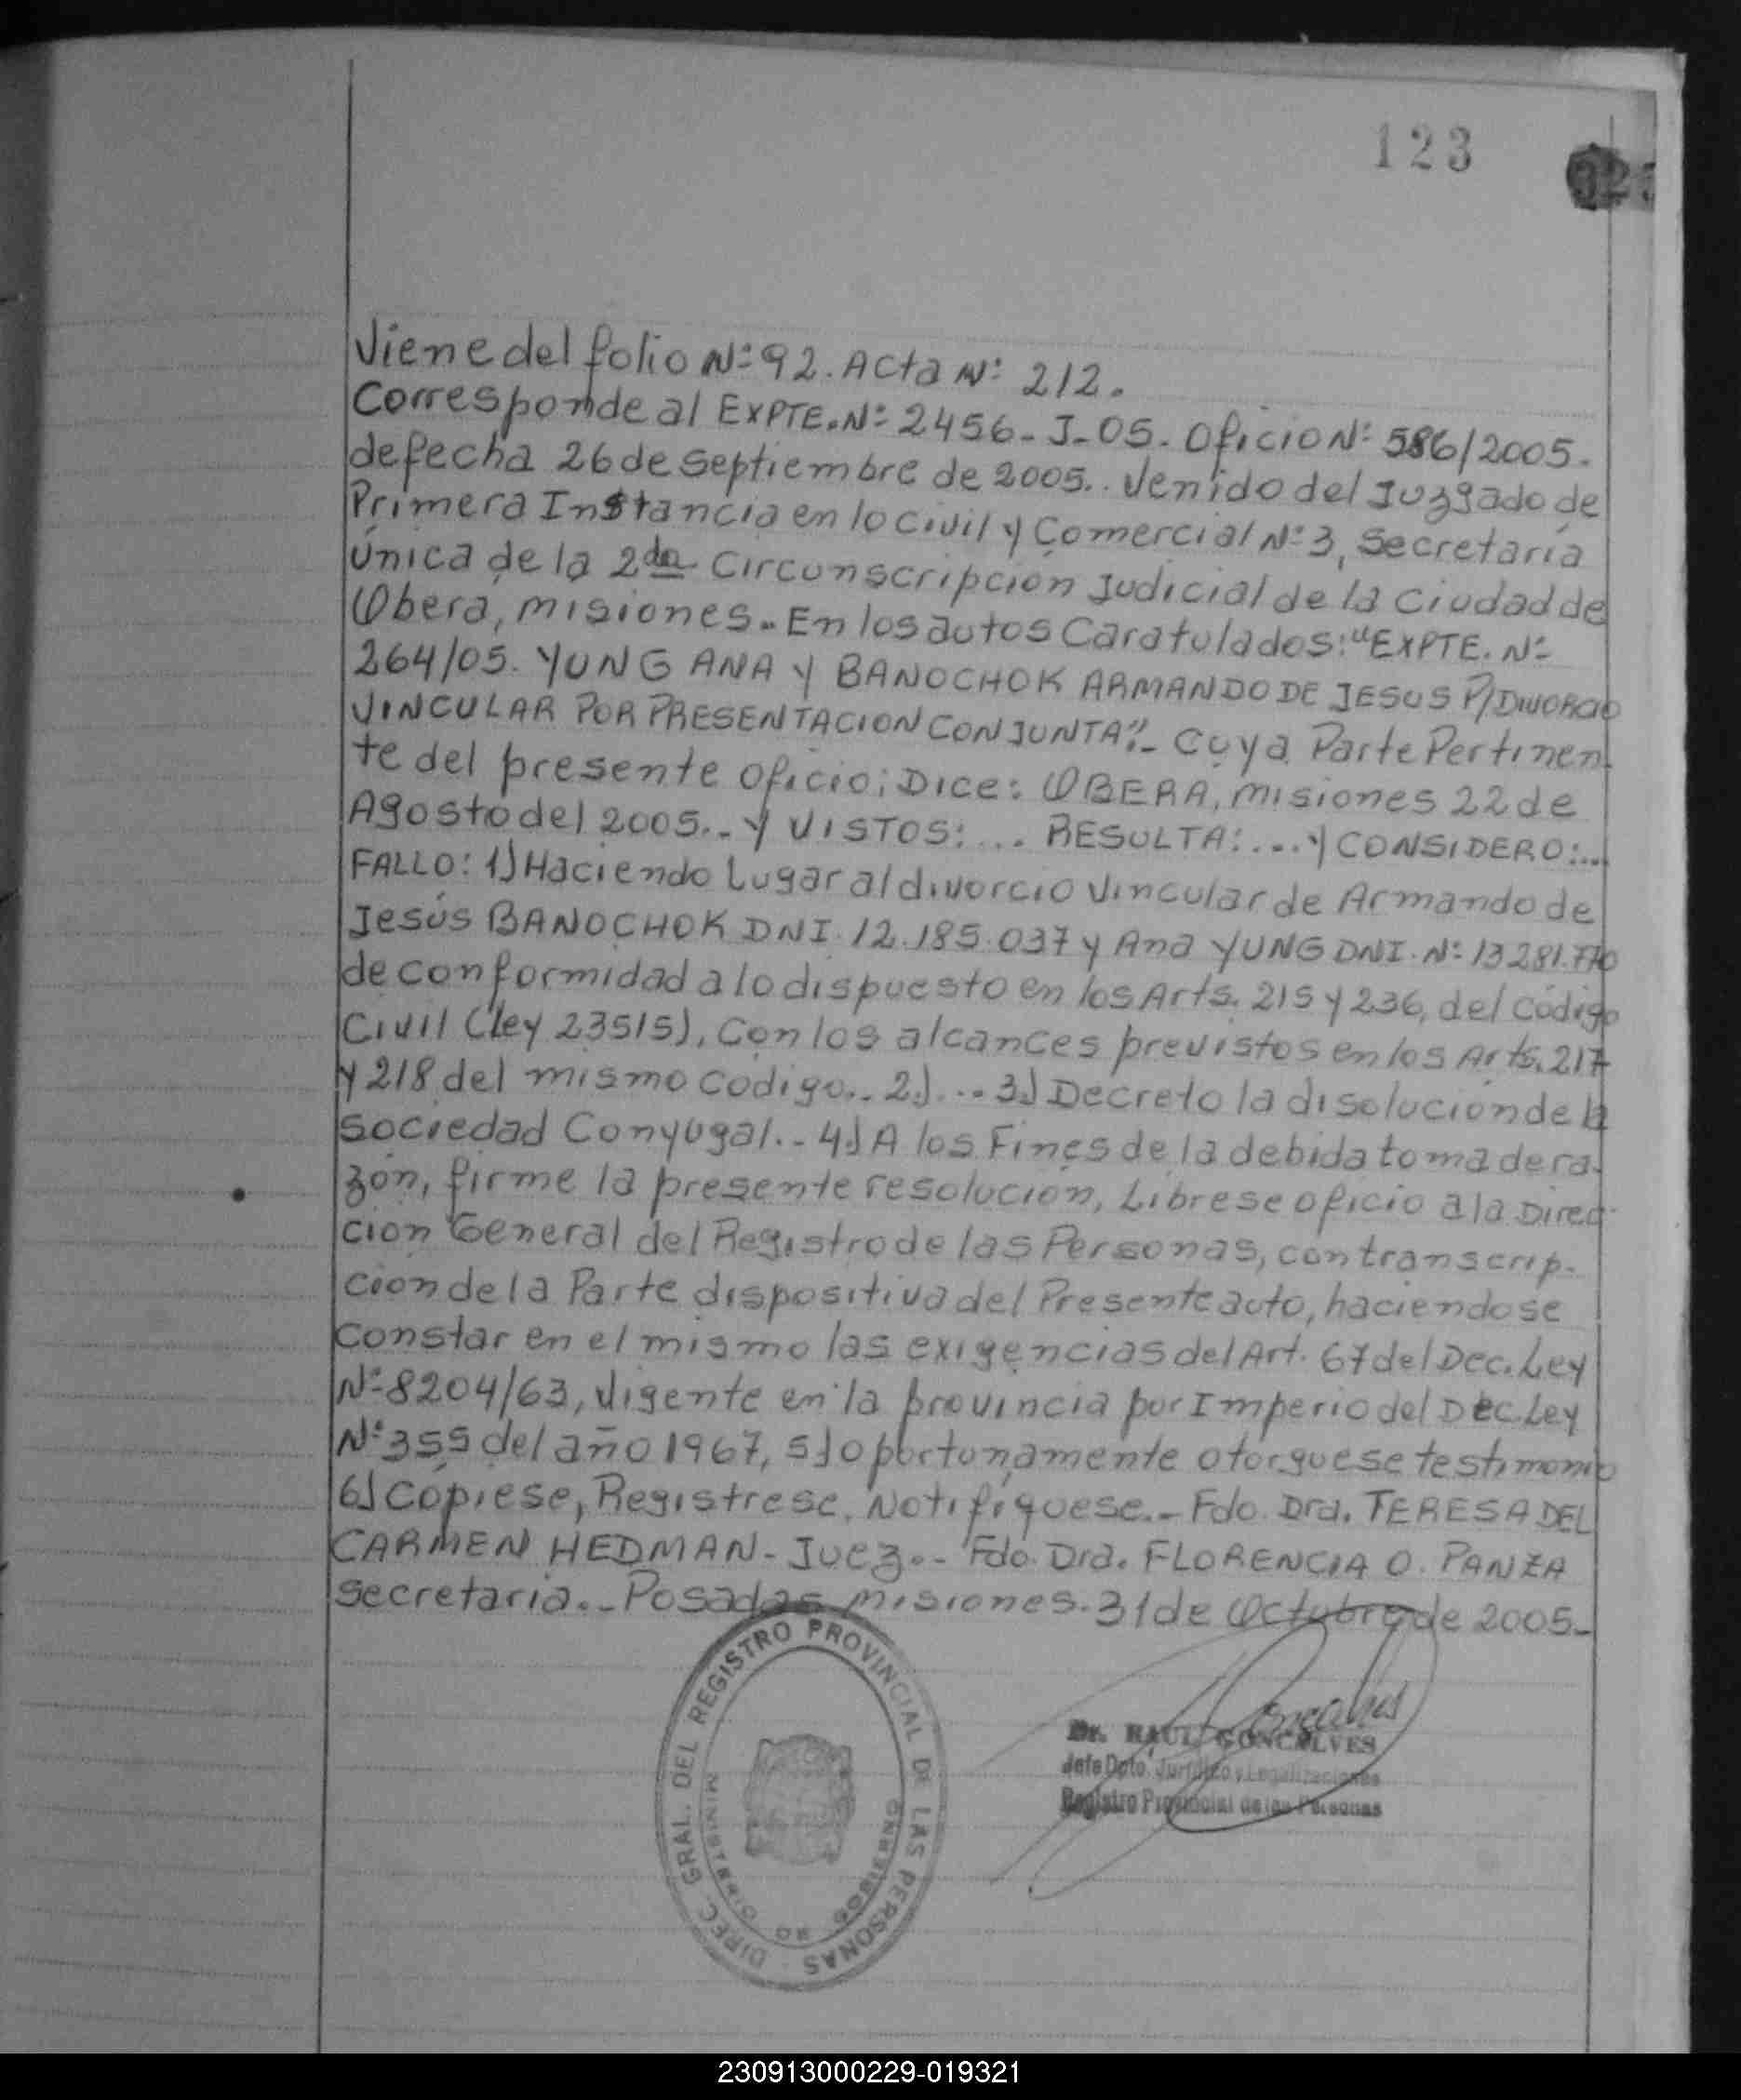 123
Viene del folio Nº 92. Acta Nº 212.
Corresponde al EXPTE. Nº 2456-J-05. Oficio Nº 586/2005.
de fecha 26 de septiembre de 2005.. Venido del Juzgado de
Primera Instancia en lo Civil y Comercial Nº 3, Secretaría
Única de la 2da Circunscripción Judicial de la Ciudad de
Oberá, Misiones.- En los autos Caratulados: "EXPTE. Nº
264/05. YUNG ANA Y BANOCHOK ARMANDO DE JESUS P/DIVORCIO
VINCULAR POR PRESENTACION CONJUNTA".- Cuya Parte Pertinen
te del presente oficio; Dice: OBERÁ, Misiones 22 de
Agosto del 2005.- Y VISTOS:... RESULTA:.... Y CONSIDERO:...
FALLO: 1) Haciendo Lugar al divorcio Vincular de Armando de
Jesús BANOCHOK DNI. 12.185.037 y Ana YUNG DNI. Nº 13281.770
de conformidad a lo dispuesto en los Arts. 215 y 236, del Código
Civil (ley 23515), Con los alcances previstos en los Arts. 217
y 218 del mismo Codigo.. 2.)... 3.) Decreto la disolución de la
Sociedad Conyugal.- 4.) A los Fines de la debida toma de ra-
zón, firme la presente resolución, Líbrese oficio a la Direc-
ción General del Registro de las Personas, con transcrip-
cion de la Parte dispositiva del Presente auto, haciendose
Constar en el mismo las exigencias del Art. 67 del Dec. Ley
Nº 8204/63, Vigente en la provincia por Imperio del Dec. Ley
Nº 355 del año 1967, 5) oportunamente otorguese testimonio
6) Cópiese, Registrese. Notifíquese.- Fdo. Dra. TERESA DEL
CARMEN HEDMAN - Juez.- Fdo. Dra. FLORENCIA O. PANZA
Secretaria.- Posadas Misiones. 31 de Octubre de 2005.-
DIREC. GRAL. DEL REGISTRO PROVINCIAL DE LAS PERSONAS
MINISTERIO DE GOBIERNO
Dr. RAUL GONCALVES
Jefe Dpto. Jurídico y Legalizaciones
Registro Provincial de las Personas
230913000229-019321